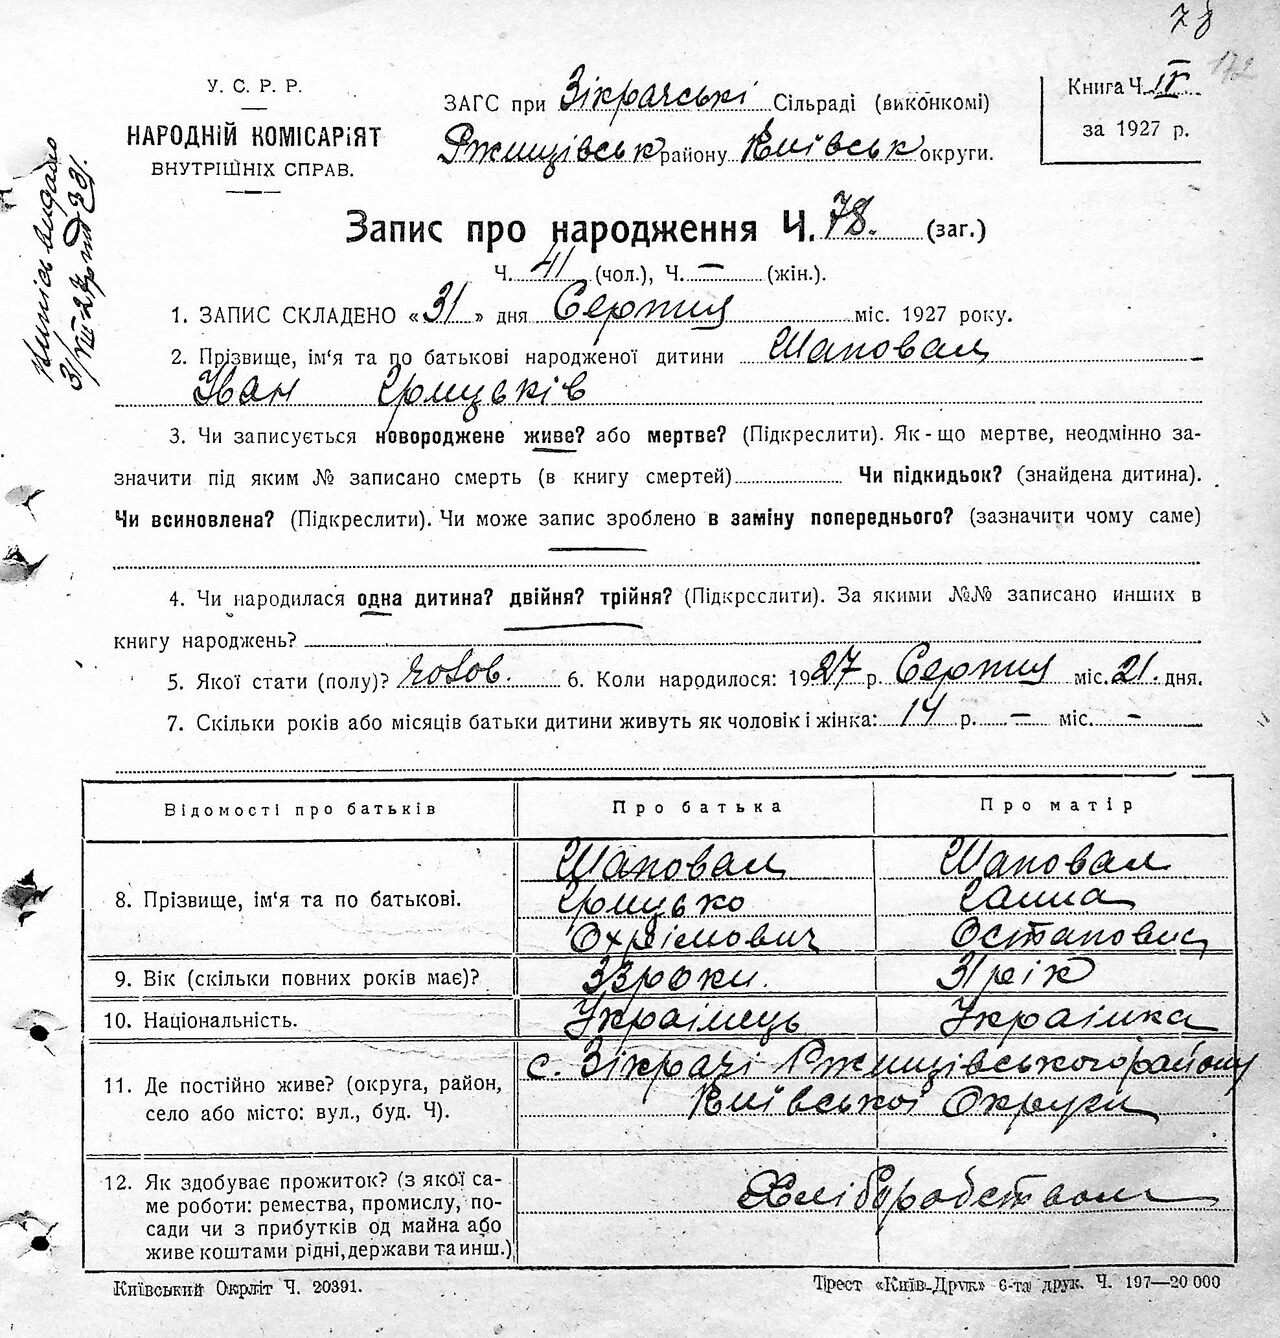 78
172
У. С. Р. Р.
НАРОДНІЙ КОМІСАРІЯТ
ВНУТРІШНІХ СПРАВ.
ЗАГС при Зікрачські Сільраді (виконкомі)
Ржищівськ району Київськ округи.
Книга Ч. IV
за 1927 р.
видано
31/VIII-27 р.
Запис про народження Ч. 78. (заг.)
Ч. 41 (чол.), Ч. — (жін.).
1. ЗАПИС СКЛАДЕНО «31» дня Серпня міс. 1927 року.
2. Прізвище, ім'я та по батькові народженої дитини Шаповал
Іван Грицьків
3. Чи записується новороджене живе? або мертве? (Підкреслити). Як-що мертве, неодмінно за-
значити під яким № записано смерть (в книгу смертей) Чи підкидьок? (знайдена дитина).
Чи всиновлена? (Підкреслити). Чи може запис зроблено в заміну попереднього? (зазначити чому саме)
4. Чи народилася одна дитина? двійня? трійня? (Підкреслити). За якими №№ записано инших в
книгу народжень?
5. Якої стати (полу)? чолов. 6. Коли народилося: 1927 р. Серпня міс. 21. дня.
7. Скільки років або місяців батьки дитини живуть як чоловік і жінка: 14 р. — міс. —
Відомості про батьків Про батька Про матір
Шаповал Шаповал
8. Прізвище, ім'я та по батькові. Грицько Ганна
Охрімович Остаповна
9. Вік (скільки повних років має)? 33 роки. 31 рік
10. Національність. Українець Українка
с. Зікрачі Ржищівського району
11. Де постійно живе? (округа, район,
село або місто: вул., буд. Ч). Київської Округи
12. Як здобуває прожиток? (з якої са-
ме роботи: ремества, промислу, по- Хліборобством
сади чи з прибутків од майна або
живе коштами рідні, держави та инш.)
Київський Окрліт Ч. 20391.
Трест «Київ-Друк» 6-та друк. Ч. 197—20 000